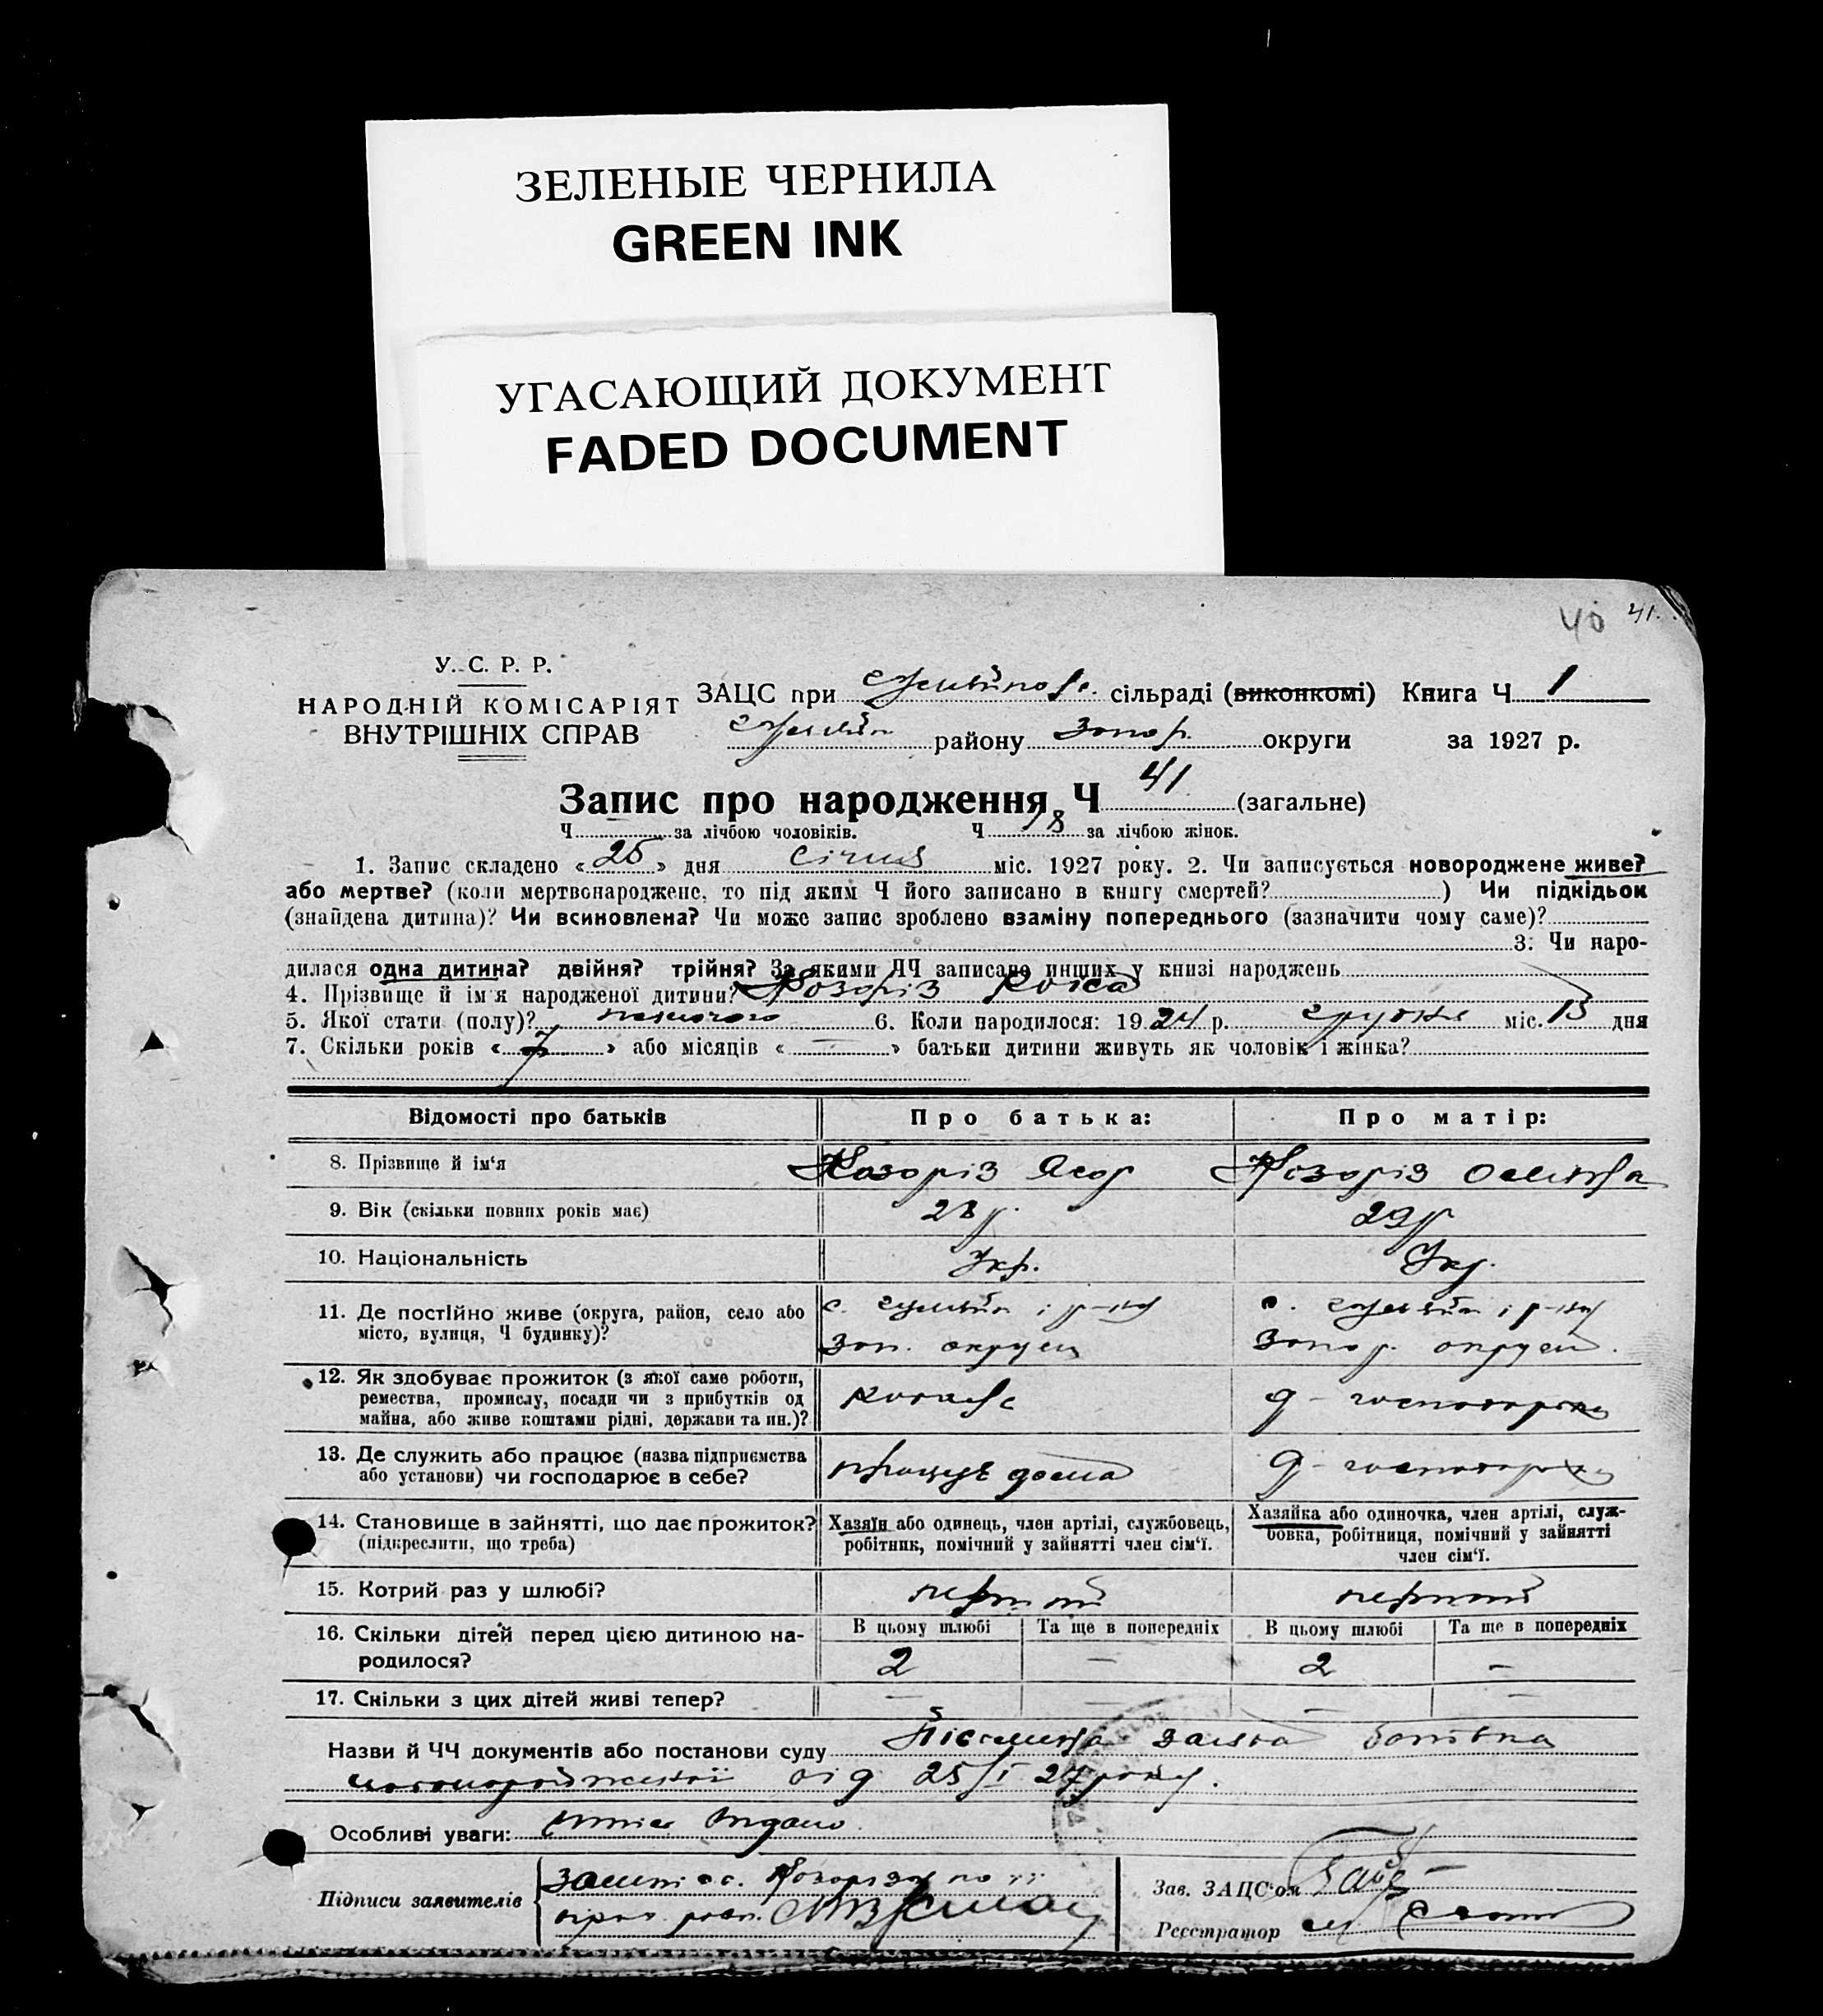 ЗЕЛЕНЫЕ ЧЕРНИЛА
GREEN INK
УГАСАЮЩИЙ ДОКУМЕНТ
FADED DOCUMENT
40 41.
У.С.Р.Р.
НАРОДНІЙ КОМІСАРІЯТ
ВНУТРІШНІХ СПРАВ
ЗАЦС при сільраді (виконкомі) Книга Ч 1
району Запор. округи за 1927 р.
Запис про народження Ч 41 (загальне)
Ч за лічбою чоловіків. Ч 18 за лічбою жінок.
1. Запис складено «25» дня січня міс. 1927 року. 2. Чи записується новороджене живе?
або мертве? (коли мертвонароджене, то під яким Ч його записано в книгу смертей? ) Чи підкідьок
(знайдена дитина)? Чи всиновлена? Чи може запис зроблено взаміну попереднього (зазначити чому саме)?
3. Чи наро-
дилася одна дитина? двійня? трійня? За якими ЧЧ записано инших у книзі народжень
4. Прізвище й ім'я народженої дитини? Козоріз Раїса
5. Якої стати (полу)? жіночого 6. Коли народилося: 1924 р. грудня міс. 13 дня
7. Скільки років «7» або місяців « — » батьки дитини живуть як чоловік і жінка?
Відомості про батьків
Про батька:
Про матір:
8. Прізвище й ім'я
Козоріз
Козоріз
9. Вік (скільки повних років має)
28 р.
29 р
10. Національність
Укр.
Укр.
11. Де постійно живе (округа, район, село або
місто, вулиця, Ч будинку)?
с. і р-ну
Зап. округи
с. і р-ну
Запор. округи.
12. Як здобуває прожиток (з якої саме роботи,
ремества, промислу, посади чи з прибутків од
майна, або живе коштами рідні, держави та ин.)?
д-господарка
13. Де служить або працює (назва підприємства
або установи) чи господарює в себе?
працує дома
д-господарка
14. Становище в зайнятті, що дає прожиток?
(підкреслити, що треба)
Хазяїн або одинець, член артілі, службовець,
робітник, помічний у зайнятті член сім'ї.
Хазяйка або одиночка, член артілі, служ-
бовка, робітниця, помічний у зайнятті
член сім'ї.
15. Котрий раз у шлюбі?
перший
перший
16. Скільки дітей перед цією дитиною на-
родилося?
В цьому шлюбі Та ще в попередніх В цьому шлюбі Та ще в попередніх
2 — 2 —
17. Скільки з цих дітей живі тепер?
— — — —
Назви й ЧЧ документів або постанови суду Пісемна заява батька
новонародженої від 25/I 27 року.
Особливі уваги: видано
Підписи заявителів
Зав. ЗАЦС'ом
Реєстратор